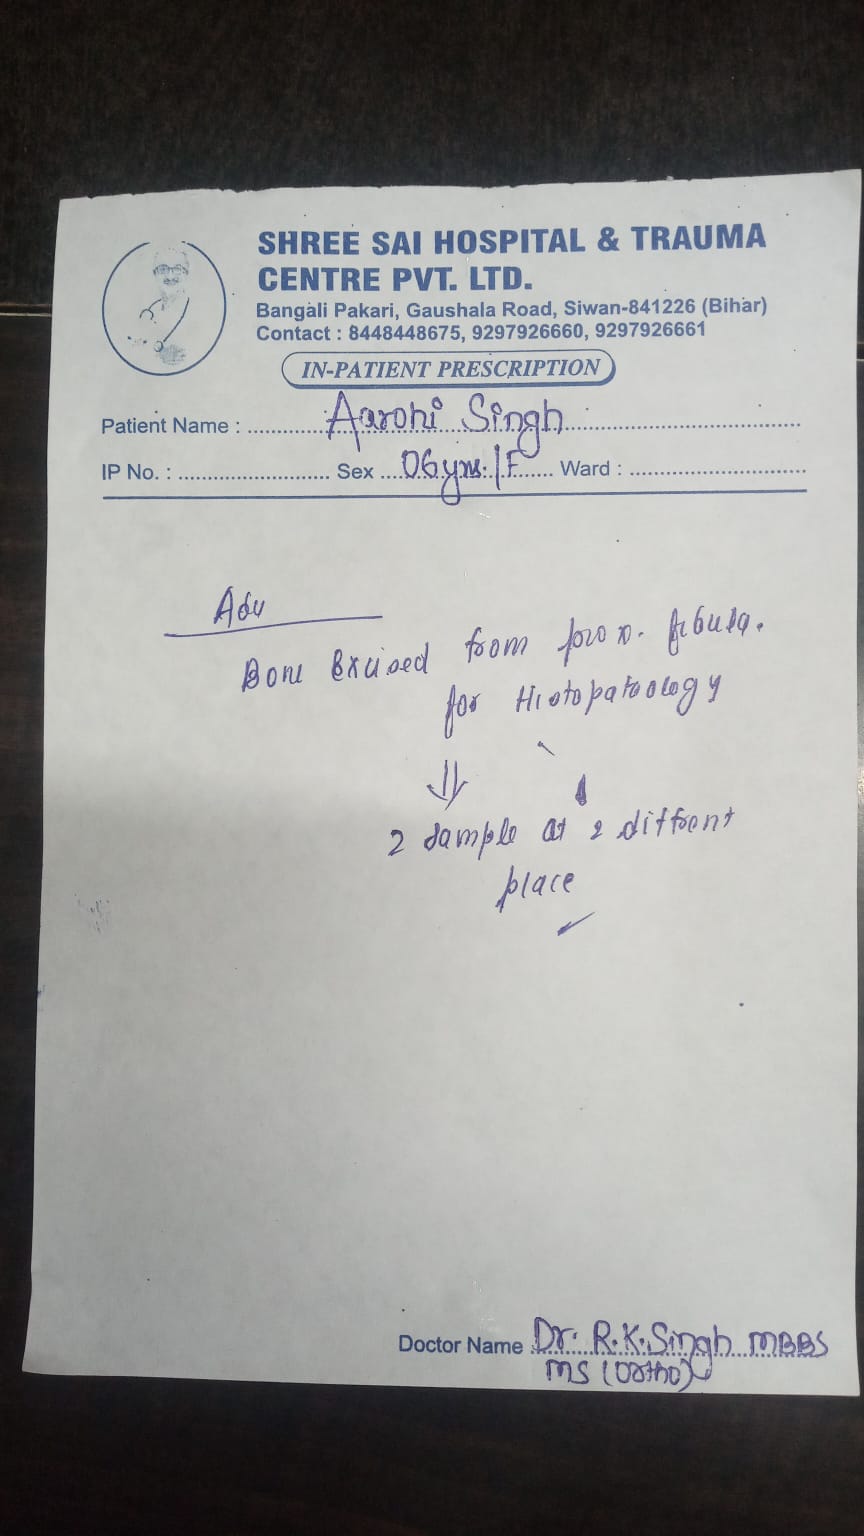 SHREE SAI HOSPITAL & TRAUMA
CENTRE PVT. LTD.
Bangali Pakari, Gaushala Road, Siwan-841226 (Bihar)
Contact : 8448448675, 9297926660, 9297926661
IN-PATIENT PRESCRIPTION
Patient Name : Aarohi Singh
IP No. : Sex 06yrs./F Ward :
Adv
Bone Excised from prox. fibula.
for Histopatoology
⇓
2 sample at 2 diffrent
place
Doctor Name Dr. R.K.Singh MBBS
MS (Ortho)